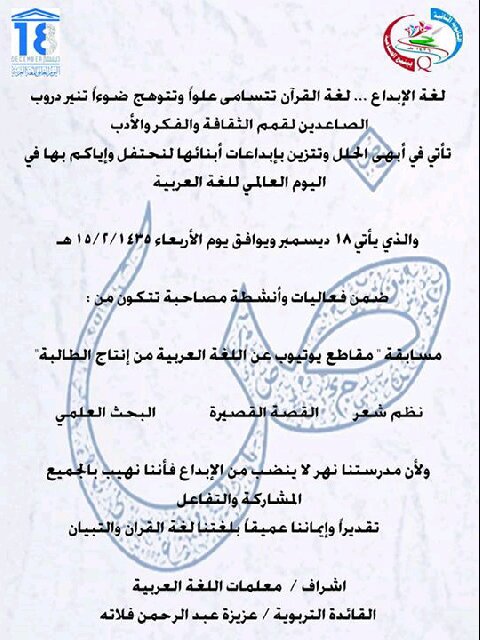 ١٨
DECEMBER
لغة الإبداع ... لغة القرآن تتسامى علواً وتتوهج ضوءاً تنير دروب
الصاعدين لقمم الثقافة والفكر والأدب
تأتي في أبهى الحلل وتتزين بإبداعات أبنائها لنحتفل وإياكم بها في
اليوم العالمي للغة العربية
والذي يأتي ١٨ ديسمبر ويوافق يوم الأربعاء ١٥/٢/١٤٣٥ هـ
ضمن فعاليات وأنشطة مصاحبة تتكون من :
مسابقة " مقاطع يوتيوب عن اللغة العربية من إنتاج الطالبة"
نظم شعر القصة القصيرة البحث العلمي
ض
ولأن مدرستنا نهر لا ينضب من الإبداع فأننا نهيب بالجميع
المشاركة والتفاعل
تقديراً وإيماننا عميقاً بلغتنا لغة القران والتبيان
اشراف / معلمات اللغة العربية
القائدة التربوية / عزيزة عبد الرحمن فلاته